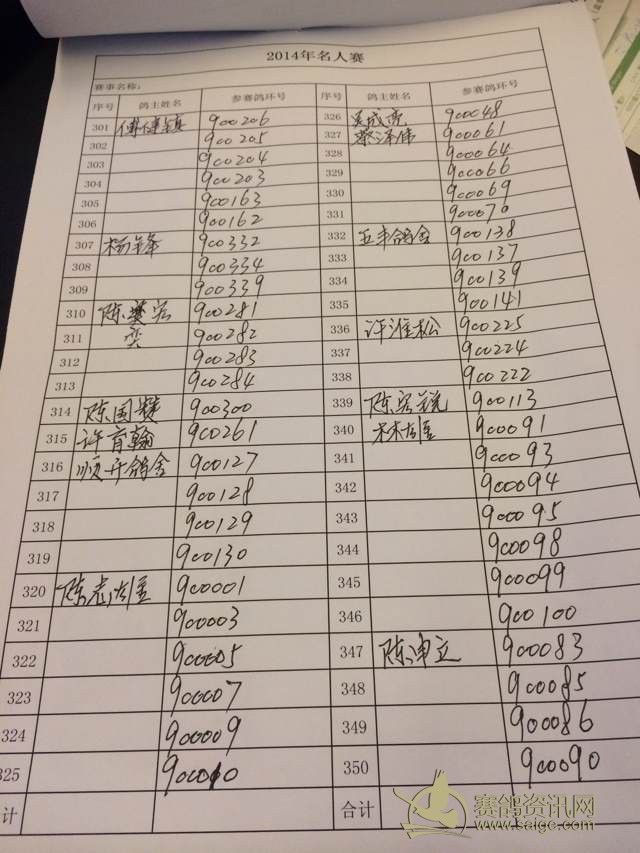 2014年名人赛
赛事名称:
序号 鸽主姓名 参赛鸽环号 序号 鸽主姓名 参赛鸽环号
301 900206 326 900048
302 900205 327 蔡泽伟 900061
303 900204 328 900064
304 900203 329 900066
305 900163 330 900069
306 900162 331 900070
307 杨锋 900332 332 五丰鸽舍 900138
308 900334 333 900137
309 900339 334 900139
310 陈 900281 335 900141
311 奕 900282 336 许淮松 900225
312 900283 337 900224
313 900284 338 900222
314 陈国赞 900300 339 陈宏锐 900113
315 许育翰 900261 340 900091
316 顺升鸽舍 900127 341 900093
317 900128 342 900094
318 900129 343 900095
319 900130 344 900098
320 陈 900001 345 900099
321 900003 346 900100
322 900005 347 陈沛立 900083
323 900007 348 900085
324 900009 349 900086
325 900010 350 900090
计 合计
赛鸽资讯网
www.saige.com